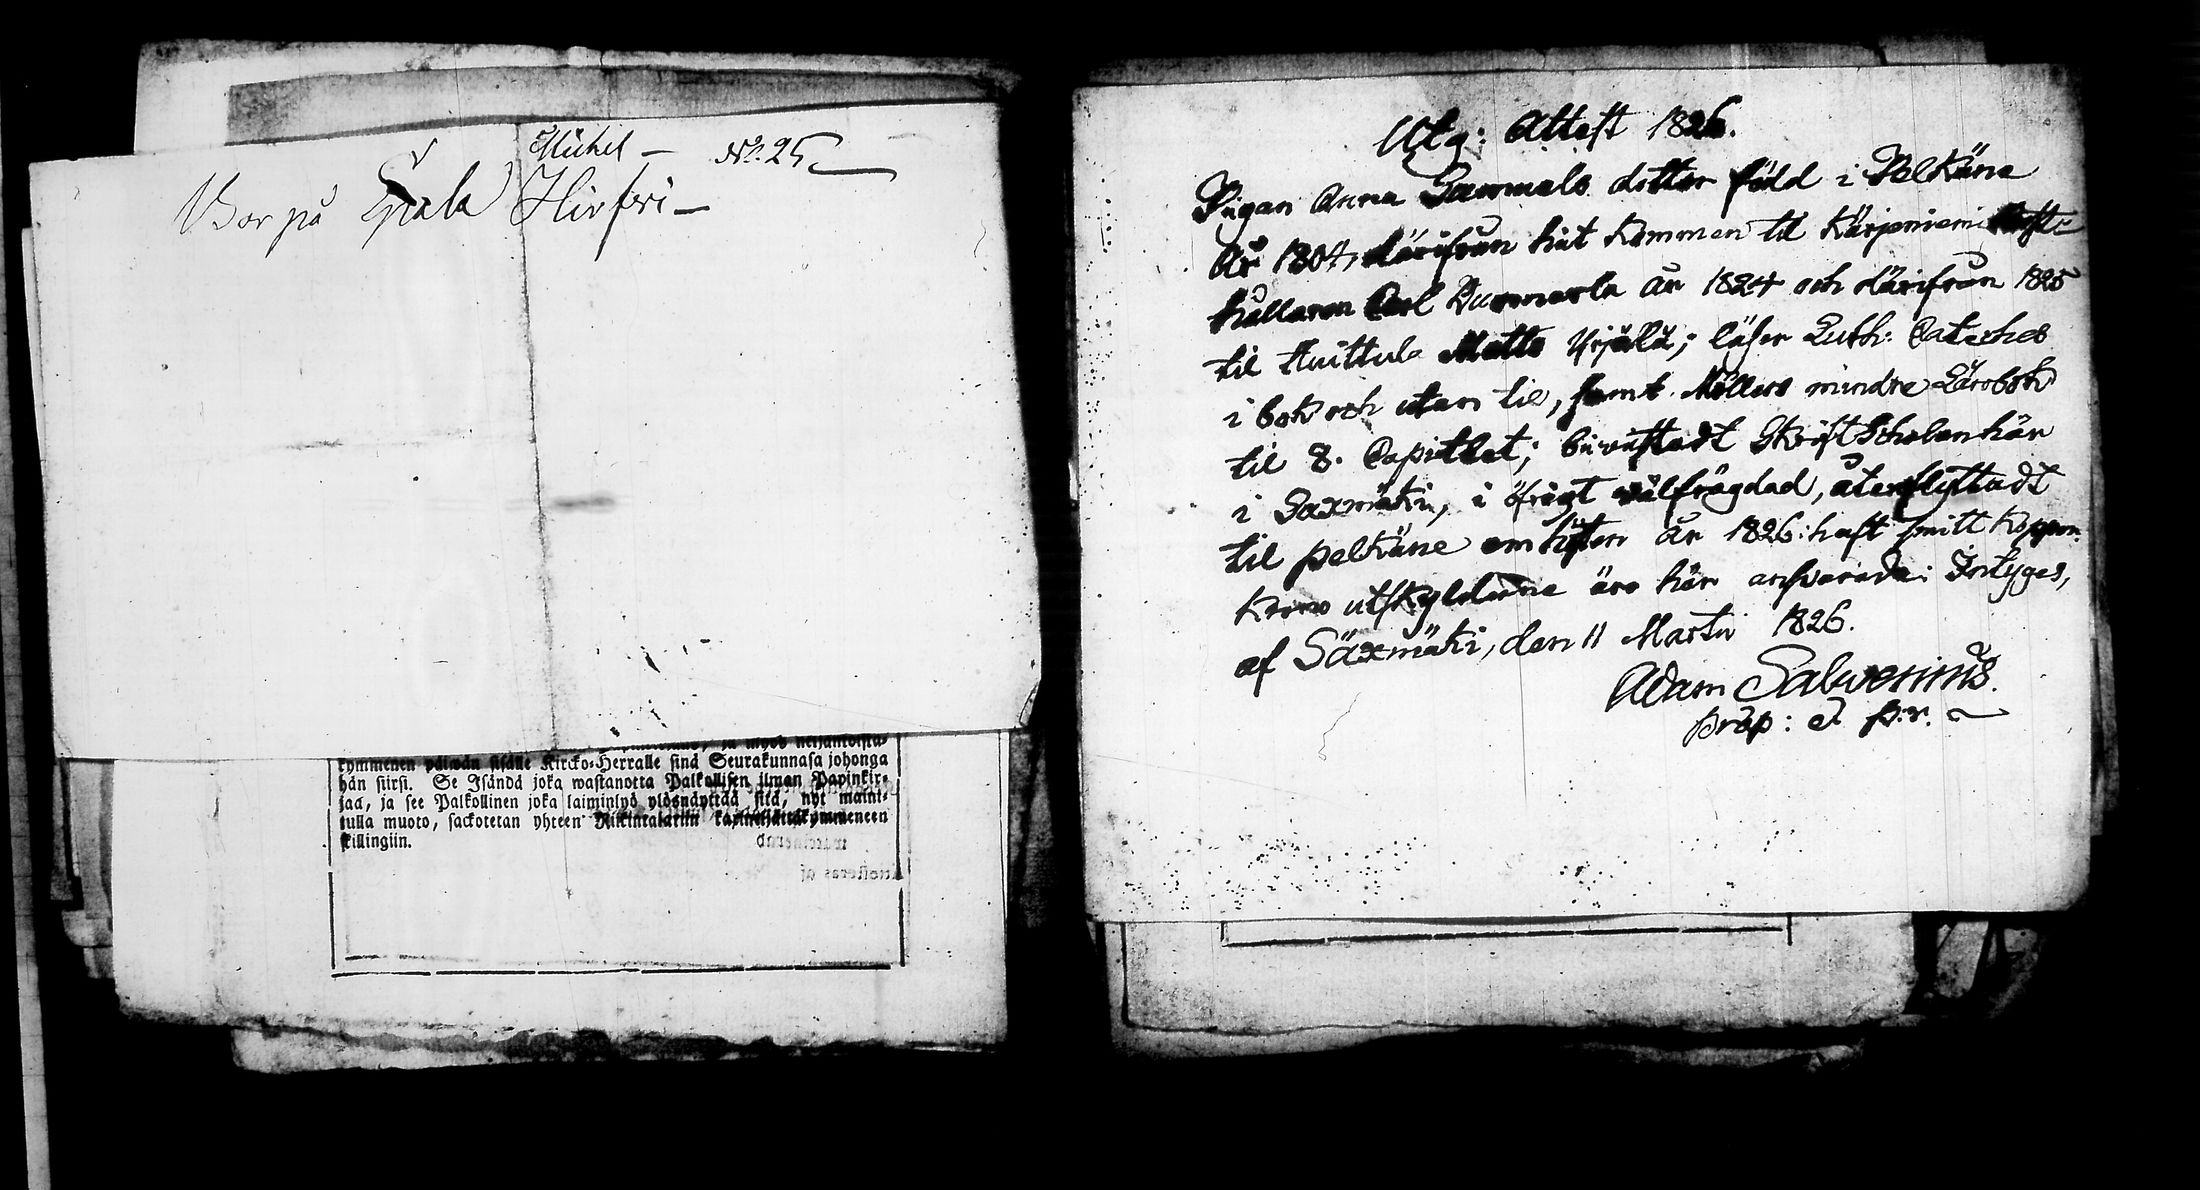 Michel — No. 25
Bor på Hirferi —
kymmenen päiwän sisälle Kircko-Herralle sinä Seurakunnasa johonga
hän siirsi. Se Isändä joka wastanotta Palkollisen ilman Papinkir-
jaa, ja see Palkollinen joka laiminlyö ylösnäyttää sitä, nyt maini-
tulla muoto, sackotetan yhteen Riikintalariin
skillingiin.
Utg: Attest 1826.
Pigan Anna Sammels dotter född i Pelkäne
År 1804, därifrån hit kommen til Kärjenniemi Rust-
hållaren Carl Dummerla år 1824 och därifrån 1825
til Huittula Matts Yrjälä; läser Luth: Cateches
i bok och utan til, samt Möllers mindre Lärobok
til 8. Capitlet; biwistadt Skrift Scholan här
i Saxmäki, i öfrigt wälfrägdad, återflyttadt
til pelkäne om hösten år 1826: haft smitt koppor.
krono utskylderne äro här answarade: Intyges,
af Säxmäki, den 11 Martii 1826.
Adam Salwenius.
Pråp: &. P:r.